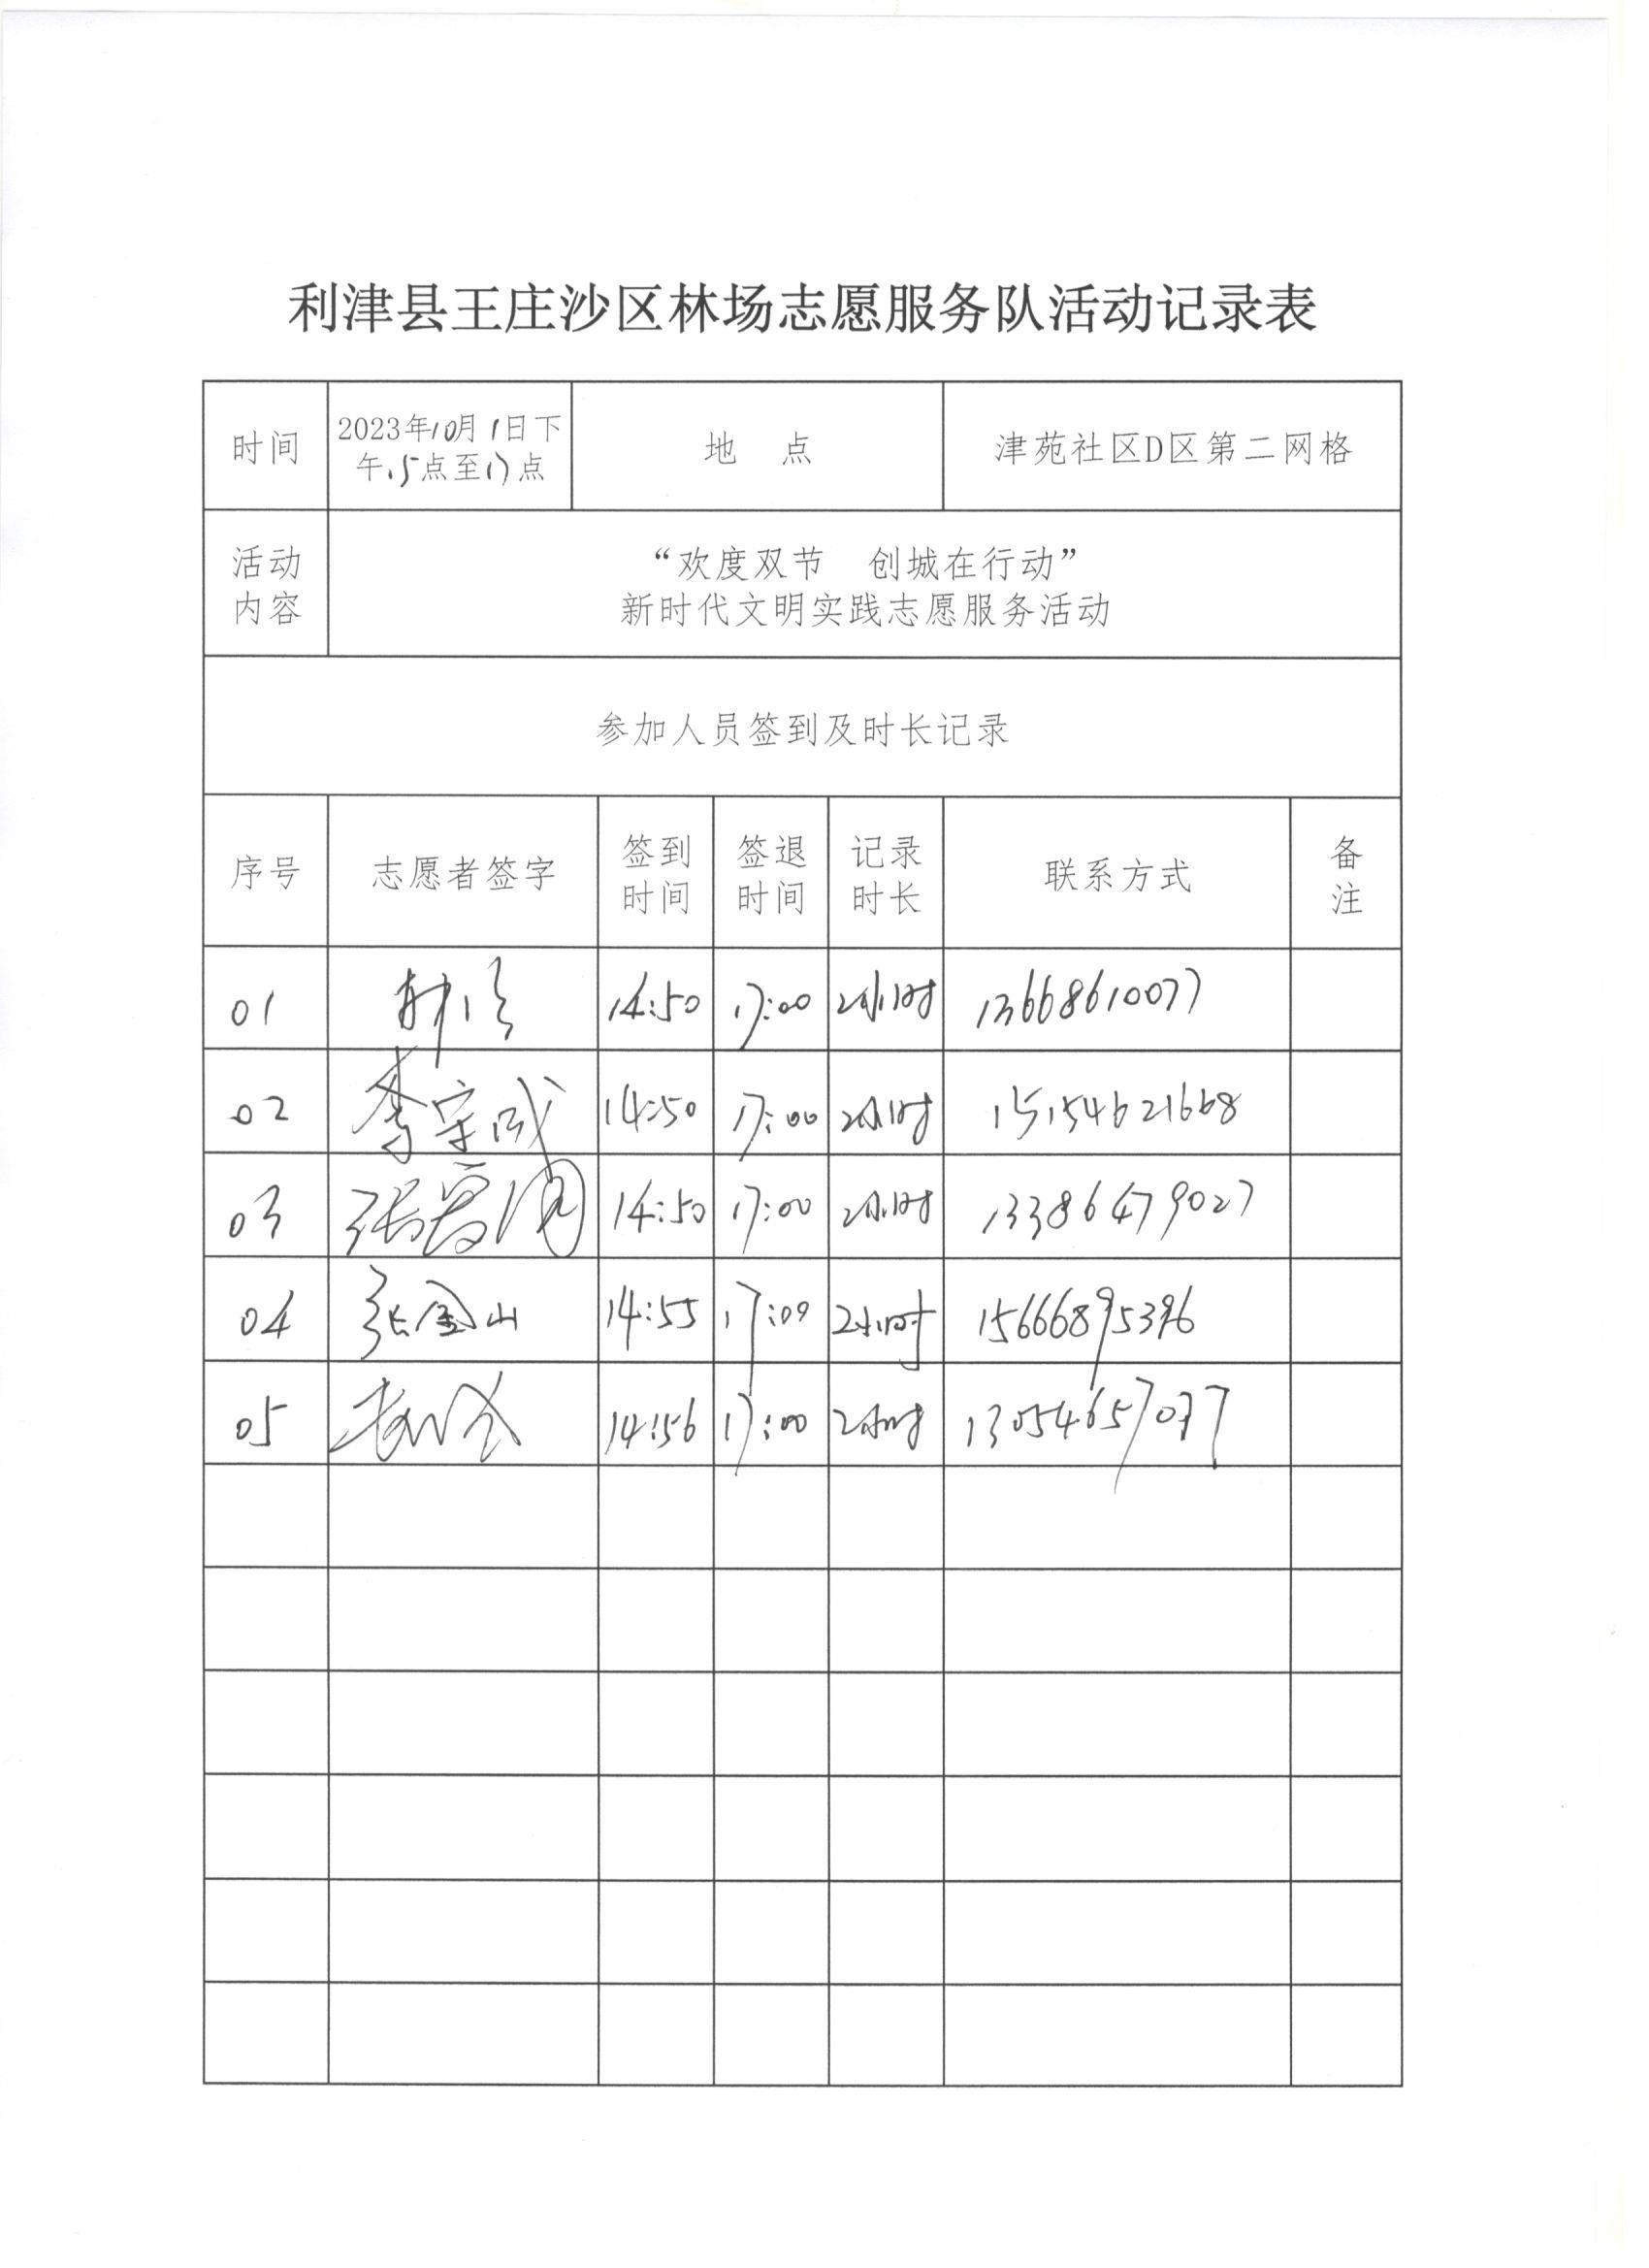 利津县王庄沙区林场志愿服务队活动记录表
时间 2023年10月1日下午15点至17点 地 点 津苑社区D区第二网格
活动内容 “欢度双节 创城在行动”
新时代文明实践志愿服务活动
参加人员签到及时长记录
序号 志愿者签字 签到时间 签退时间 记录时长 联系方式 备注
01 14:50 17:00 2小时 13668610077
02 14:50 17:00 2小时 15154621668
03 14:50 17:00 2小时 13386479027
04 张金山 14:55 17:00 2小时 15666895396
05 14:56 17:00 2小时 13054657077